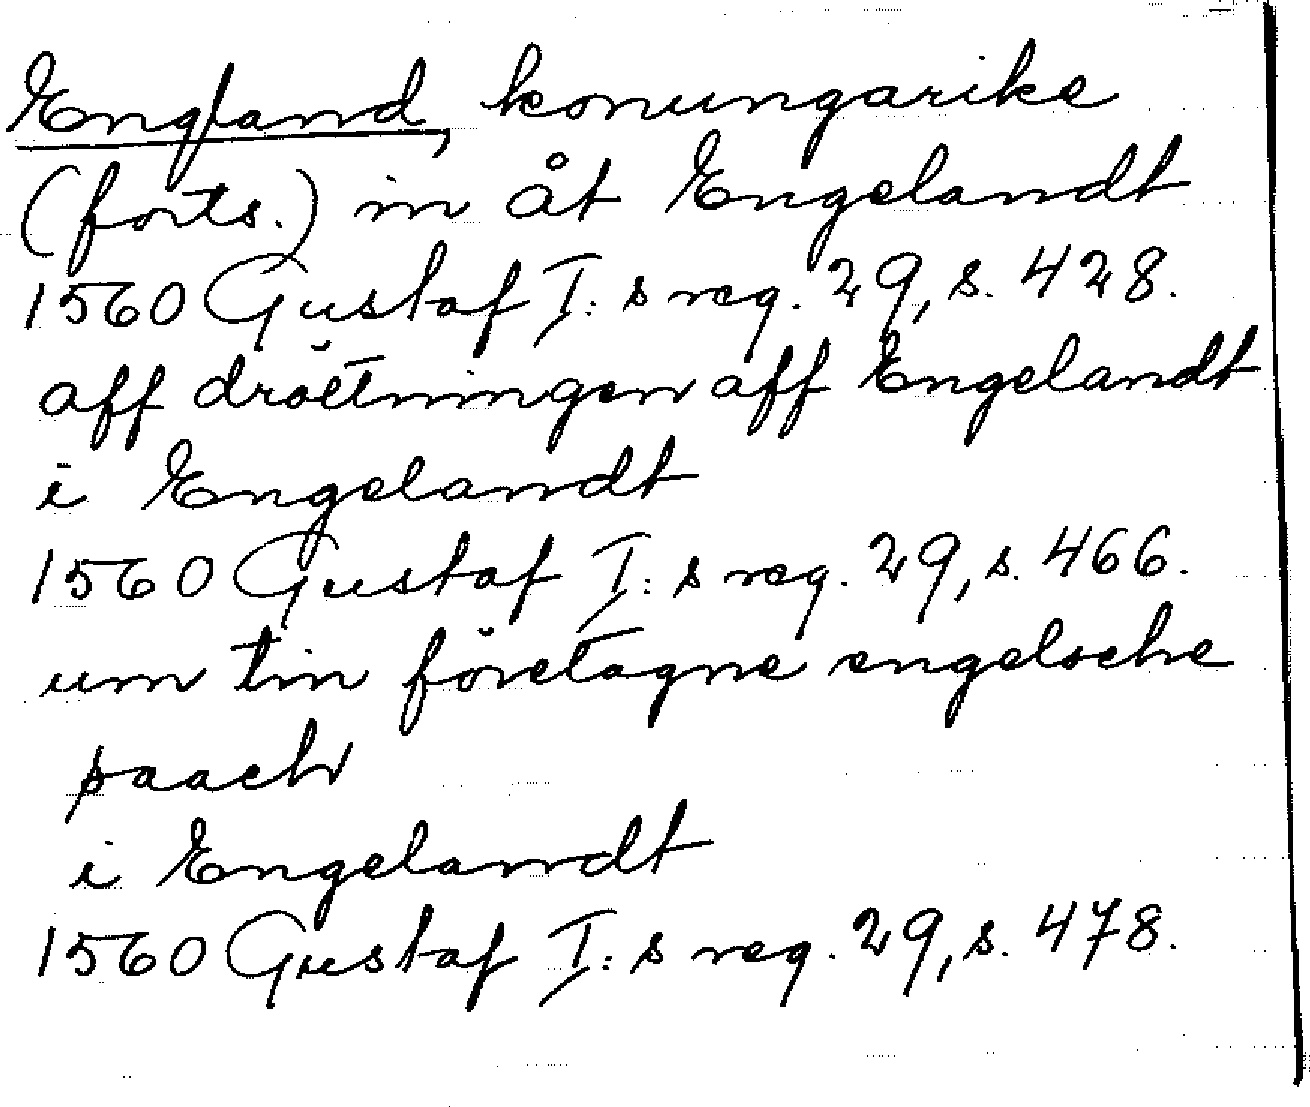 England, konungarike
(forts.) in åt Engelandt
1560 Gustaf I:s reg. 29, s. 428.
aff dröttningen aff Engelandt
i Engelandt
1560 Gustaf I:s reg. 29, s. 466.
um tin företagne engelsche
saach
i Engelandt
1560 Gustaf I:s reg. 29, s. 478.